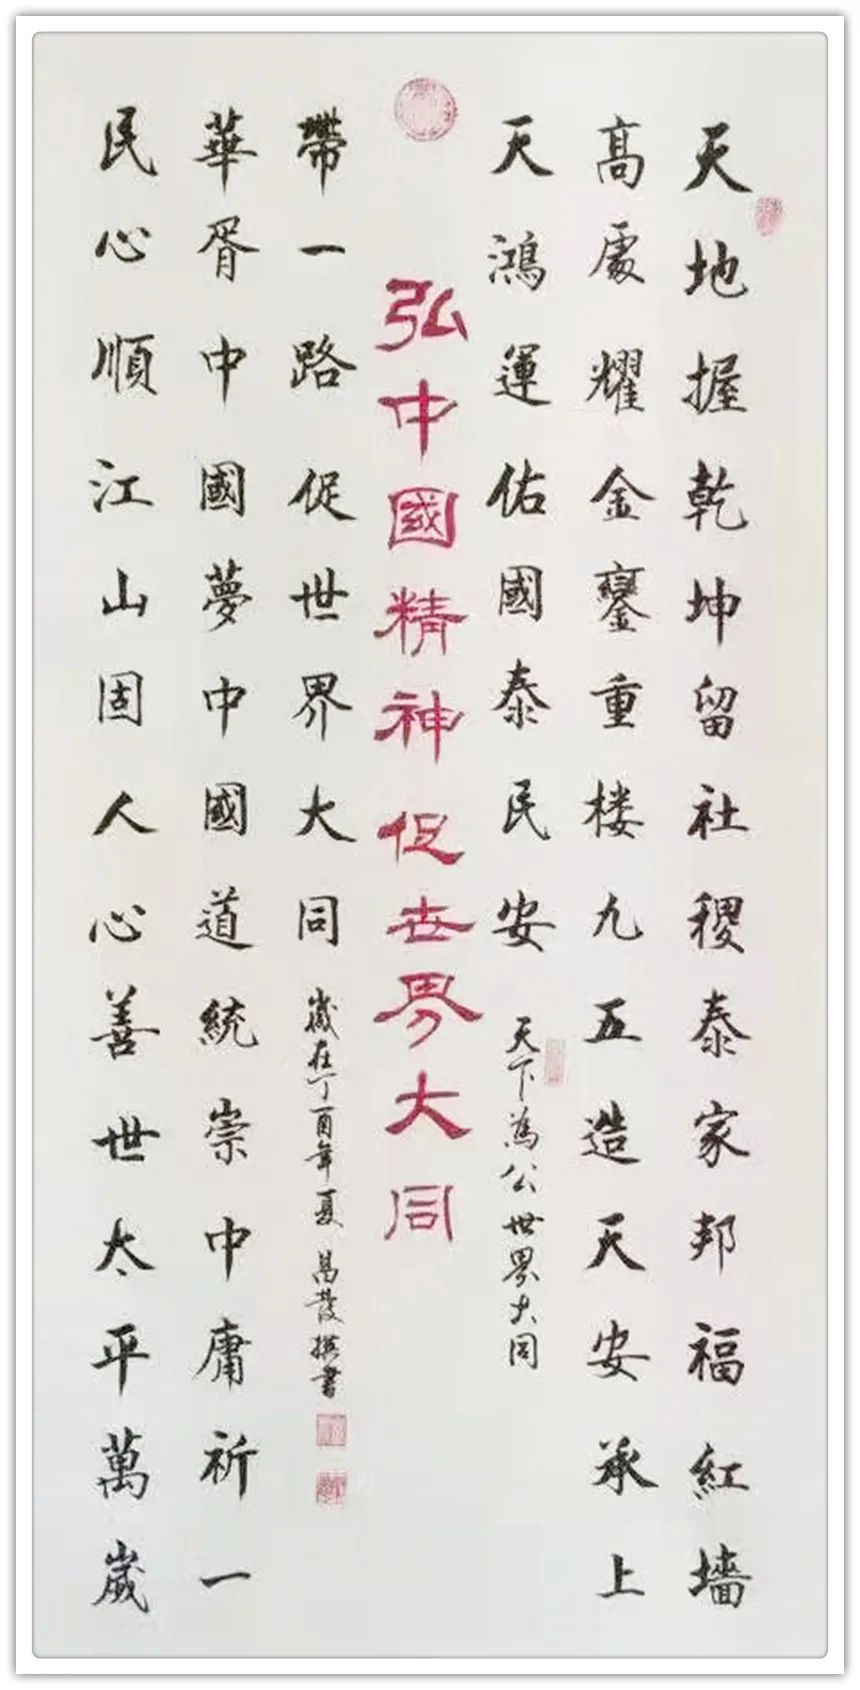 天地握乾坤留社稷泰家邦福紅墻
髙處耀金鑾重楼九五造天安承上
天鴻運佑國泰民安
天下為公世界大同
弘中國精神促世界大同
民心順江山固人心善世太平萬歲
華胥中國夢中國道統崇中庸祈一
帶一路促世界大同
歲在丁酉年夏 發撰書